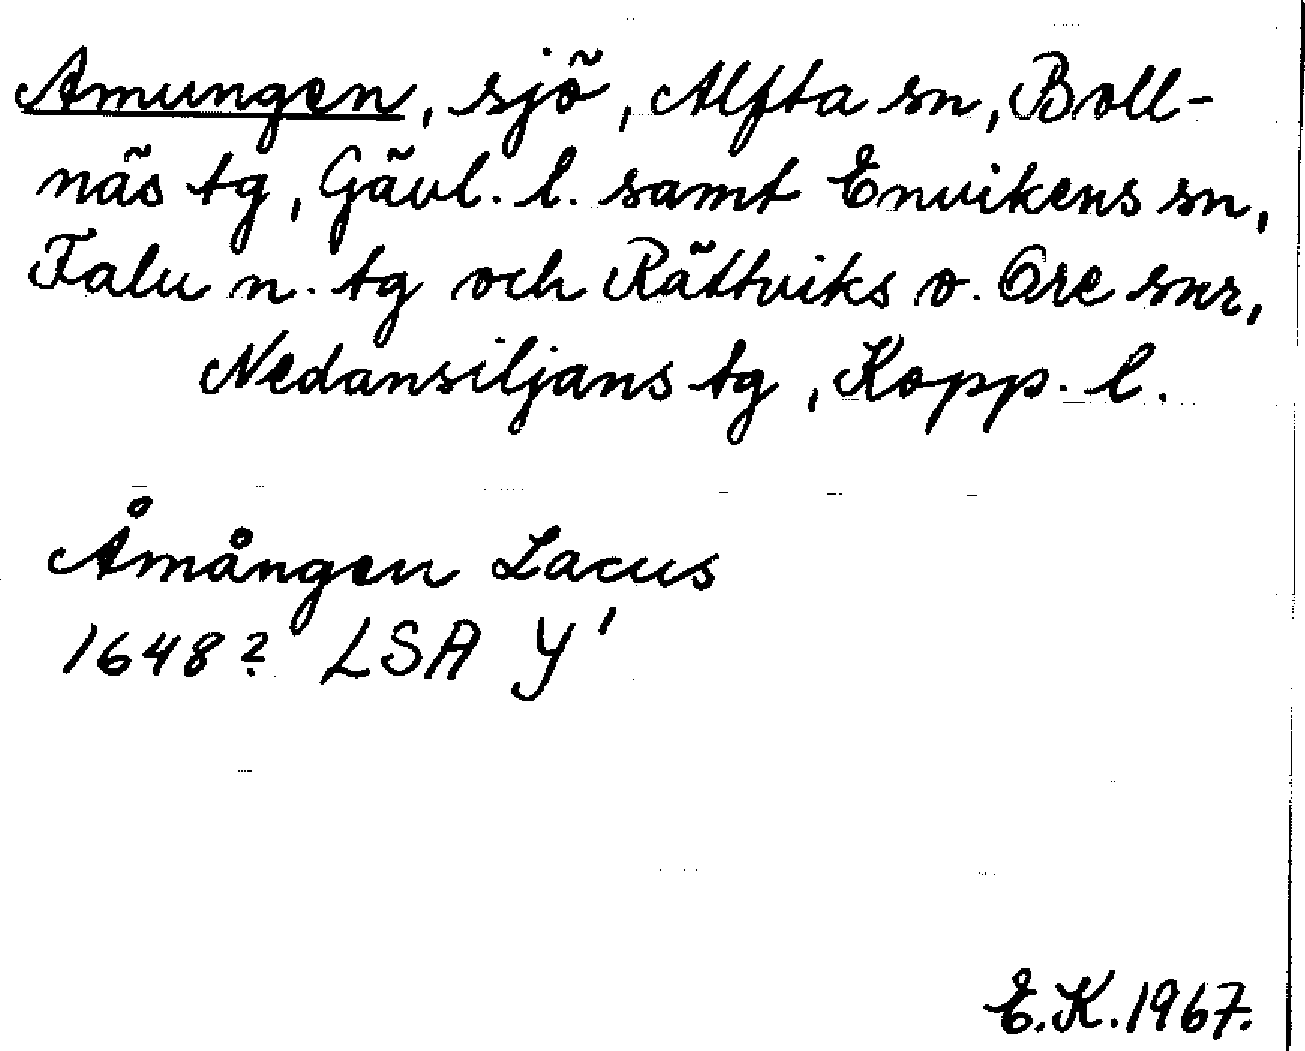 Amungen, sjö, Alfta sn, Boll-
näs tg, Gävl. l. samt Envikens sn,
Falu n. tg och Rättviks o. Ore snr,
Nedansiljans tg, Kopp. l.
Åmången Lacus
1648? LSA Y'
E.K. 1967.